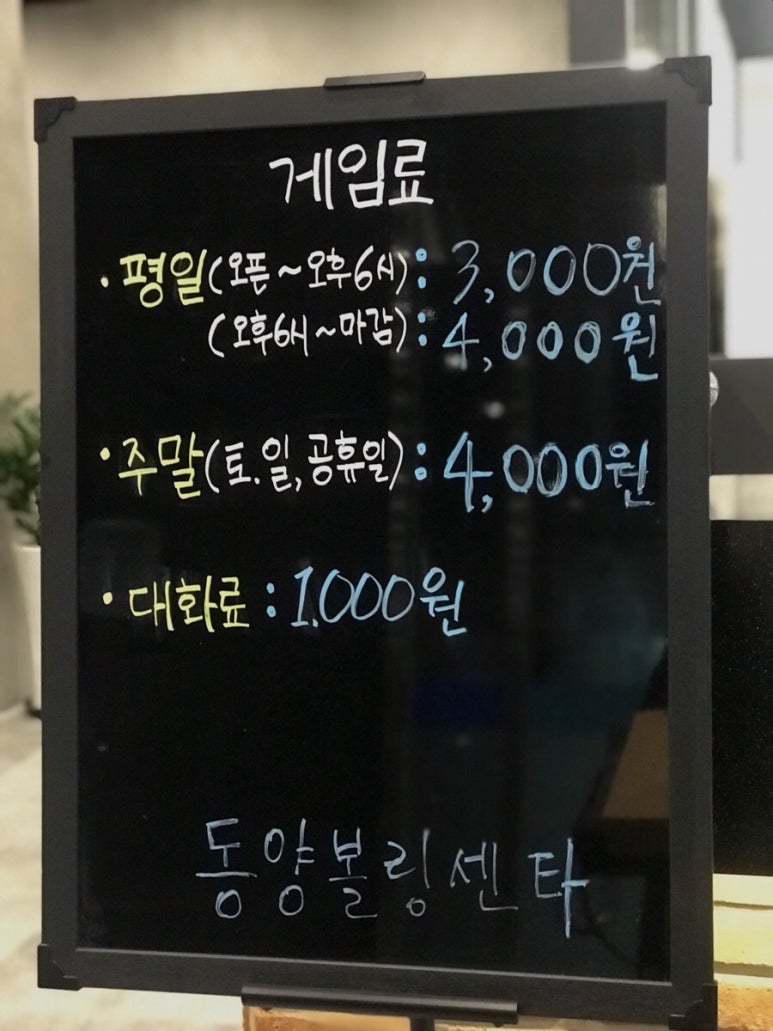 게임료
· 평일(오픈~오후6시): 3,000원
(오후6시~마감): 4,000원
· 주말(토.일,공휴일): 4,000원
· 대화료: 1.000원
동양볼링센타